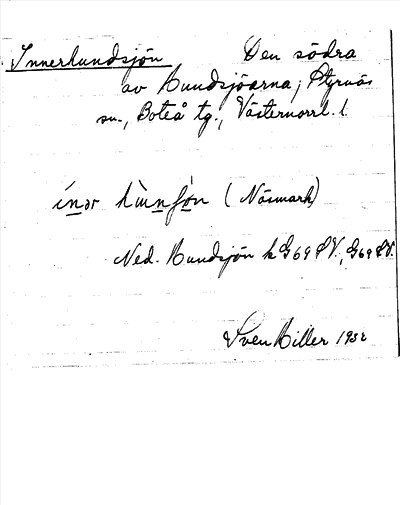 Innerhundsjön Den södra
av Hundsjöarna, Styrnäs
sn., Boteå tg., Västernorrl. l.
ínər hùnʃòn (Näsmark)
Ned. Hundsjön k G69 SV., G69 SV.
Sven Hiller 1932